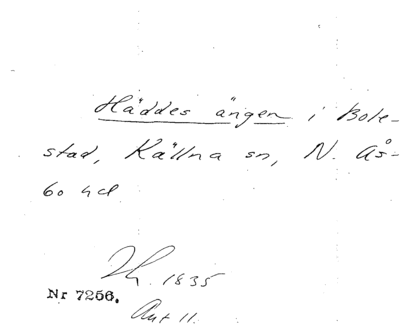 Häddes ängen i Bole-
stad, Källna sn, N. Ås-
bo hd
1835
Nr 7256.
Akt 11.